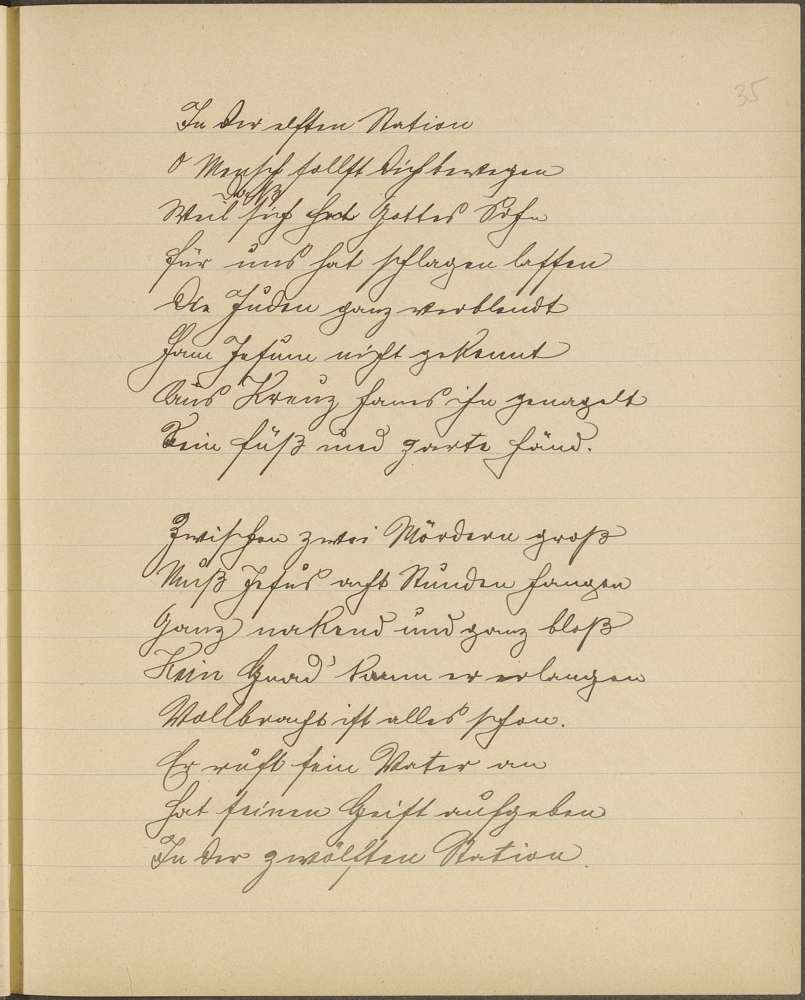 35
In der elften Station
O Mensch sollst dich bewegen
daß
Weil sich hat Gottes Sohn
für uns hat schlagen lassen
Die Juden ganz verblendt
Ham Jesum nicht gekannt
Ans Kreuz hams ihn genagelt
Sein füß und zarte Händ.
Zwischen zwei Mördern groß
Muß Jesus acht Stunden hangen
Ganz nakend und ganz bloß
Kein Gnad' kann er erlangen
Vollbracht ist alles schon.
Er ruft sein Vater an
Hat seinen Geist aufgeben
In der zwölften Station.